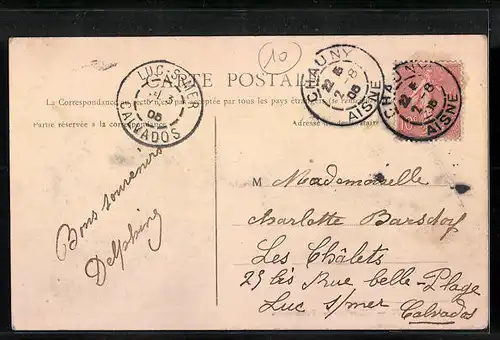 10
CARTE POSTALE
La Correspondance au recto n'est pas acceptée par tous les pays étrangers (se ren
Partie réservée à la correspondance
Adresse du destinataire
LUC-S-MER
3
05
CALVADOS
CHAUNY
22 15
2 -8
05
AISNE
CHAUNY
22 15
2 -8
05
AISNE
10
Bons souvenirs
Delphine
M Mademoiselle
Charlotte Barsdorf
Les Châlets
25 bis Rue belle-Plage
Luc s/mer Calvados